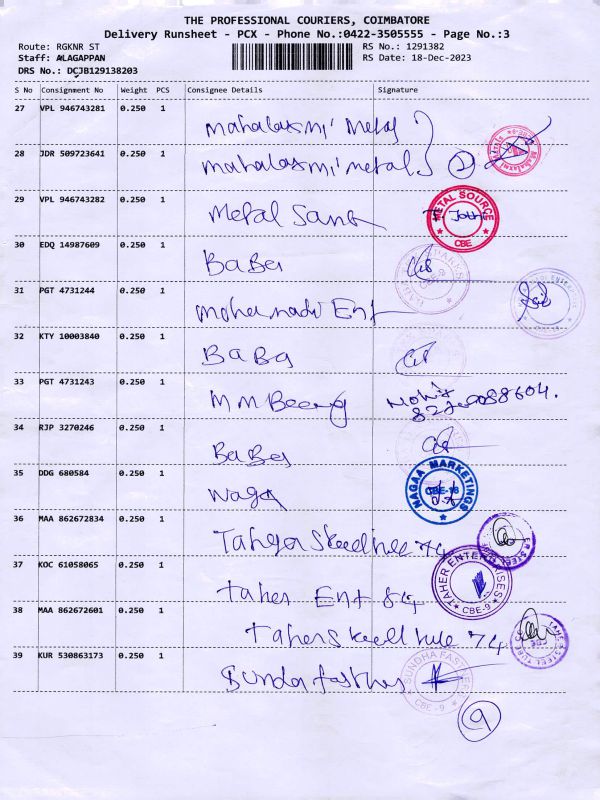 THE PROFESSIONAL COURIERS, COIMBATORE
Delivery Runsheet - PCX - Phone No.:0422-3505555 - Page No.:3
Route: RGKNR ST
RS No.: 1291382
Staff: ALAGAPPAN
RS Date: 18-Dec-2023
DRS No.: DCJB129138203
S No Consignment No Weight PCS Consignee Details Signature
27 VPL 946743281 0.250 1
mahalaxmi Metal
28 JDR 509723641 0.250 1
mahalaxmi metal 2
29 VPL 946743282 0.250 1
Metal
METAL SOURCE CBE
30 EDQ 14987609 0.250 1
BaBa
31 PGT 4731244 0.250 1
Ent
32 KTY 10003840 0.250 1
BaBa
33 PGT 4731243 0.250 1
MM
34 RJP 3270246 0.250 1
BaBa
35 DDG 680584 0.250 1
naga
NAGAA MARKETINGS CBE-18
36 MAA 862672834 0.250 1
74
37 KOC 61058065 0.250 1
Taher Ent 84
TAHER ENTERPRISES CBE-9
38 MAA 862672601 0.250 1
74
39 KUR 530863173 0.250 1
Sunda
SUNDHA FASTNERS CBE-9
9